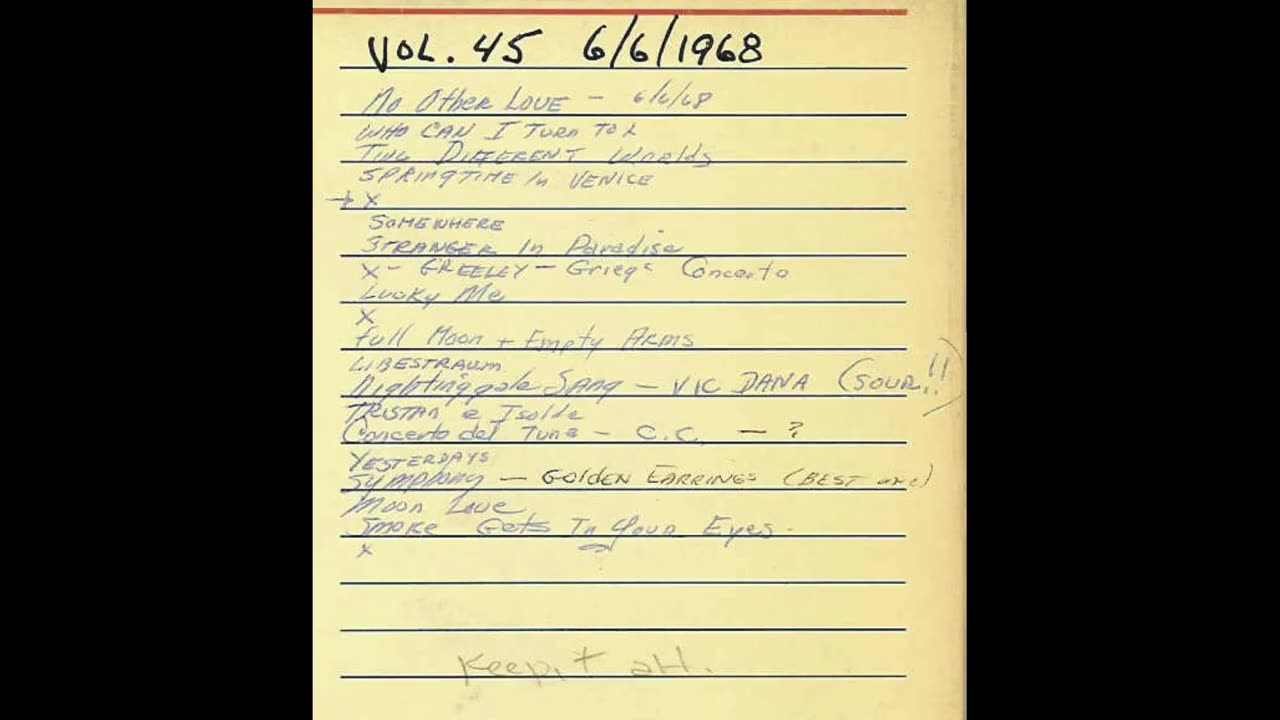 VOL. 45 6/6/1968
No Other Love - 6/6/68
WHO CAN I TURN TO
Two DIFFERENT Worlds
SPRINGTIME In VENICE
→ X
SOMEWHERE
STRANGER In Paradise
X - GREELEY - Griegs Concerto
Lucky Me
X
Full Moon + Empty ARMS
LIBESTRAUM
Nightingale SANG - VIC DANA (SOUR!!)
TRISTAN e Isolde
Concerto del Tuna - C.C. - ?
YESTERDAYS
Symphony - GOLDEN EARRINGS (BEST one)
Moon Love
Smoke Gets In Your Eyes -
X
Keep it all.